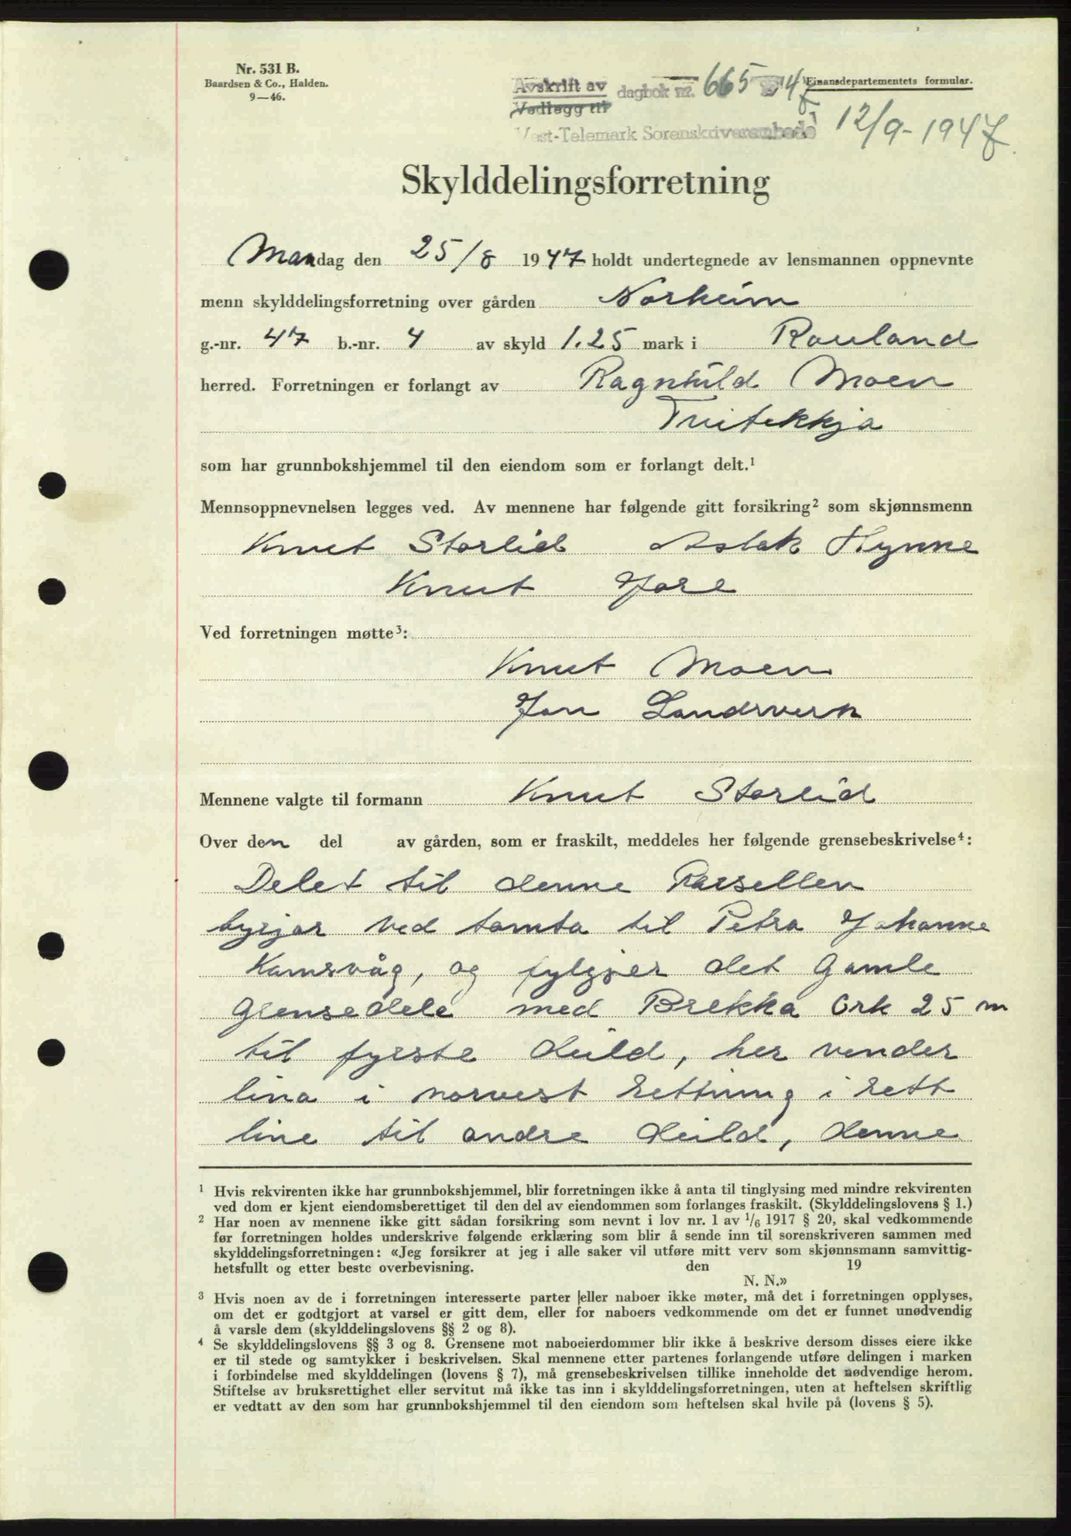 Nr. 531 B.
Baardsen & Co., Halden.
9—46.
Avskrift av
Vedlegg til
dagbok nr. 665 1947
Finansdepartementets formular.
Vest-Telemark Sorenskriverembede
12/9-1947
Skylddelingsforretning
Mandag den 25/8 1947 holdt undertegnede av lensmannen oppnevnte
menn skylddelingsforretning over gården Norheim
g.-nr. 47 b.-nr. 4 av skyld 1.25 mark i Rauland
herred. Forretningen er forlangt av Ragnhild Moen
Tveitekkja
som har grunnbokshjemmel til den eiendom som er forlangt delt.¹
Mennsoppnevnelsen legges ved. Av mennene har følgende gitt forsikring² som skjønnsmenn
Knut Storlid Aslak Kynne
Knut Jore
Ved forretningen møtte³:
Knut Moen
Jon Landsverk
Mennene valgte til formann Knut Storlid
Over den del av gården, som er fraskilt, meddeles her følgende grensebeskrivelse⁴:
Delet til denne Parsellen
byrjar ved tomta til Petra Johanne
Kamsvåg, og fylgjer det gamle
grensedele med Brekka Ork 25 m
til fyrste deild, her vender
lina i norvest rettning i rett
line til andre deild, denne
¹ Hvis rekvirenten ikke har grunnbokshjemmel, blir forretningen ikke å anta til tinglysing med mindre rekvirenten
ved dom er kjent eiendomsberettiget til den del av eiendommen som forlanges fraskilt. (Skylddelingslovens § 1.)
² Har noen av mennene ikke gitt sådan forsikring som nevnt i lov nr. 1 av 1/6 1917 § 20, skal vedkommende
før forretningen holdes underskrive følgende erklæring som blir å sende inn til sorenskriveren sammen med
skylddelingsforretningen: «Jeg forsikrer at jeg i alle saker vil utføre mitt verv som skjønnsmann samvittig-
hetsfullt og etter beste overbevisning. den 19
N. N.»
³ Hvis noen av de i forretningen interesserte parter eller naboer ikke møter, må det i forretningen opplyses,
om det er godtgjort at varsel er gitt dem, eller for naboers vedkommende om det er funnet unødvendig
å varsle dem (skylddelingslovens §§ 2 og 8).
⁴ Se skylddelingslovens §§ 3 og 8. Grensene mot naboeierdommer blir ikke å beskrive dersom disses eiere ikke
er til stede og samtykker i beskrivelsen. Skal mennene etter partenes forlangende utføre delingen i marken
i forbindelse med skylddelingen (lovens § 7), må grensebeskrivelsen tillike inneholde det nødvendige herom.
Stiftelse av bruksrettighet eller servitut må ikke tas inn i skylddelingsforretningen, uten at heftelsen skriftlig
er vedtatt av den som har grunnbokshjemmel til den eiendom som heftelsen skal hvile på (lovens § 5).